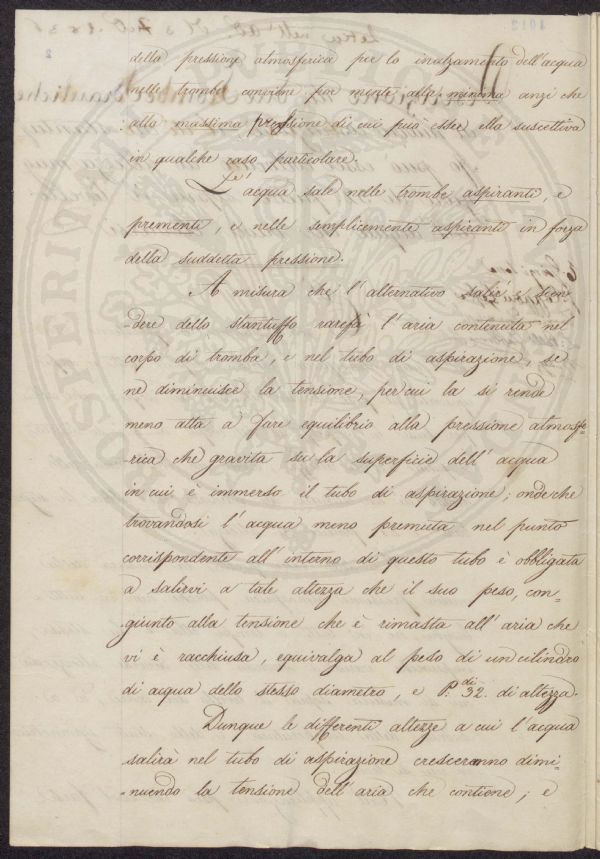 della pressione atmosferica per lo inalzamento dell'acqua
nelle trombe conviene por mente alla minima anzi che
alla massima pressione di cui può esser ella suscettiva
in qualche caso particolare.
L'acqua sale nelle trombe aspiranti, e
prementi, e nelle semplicemente aspiranti in forza
della suddetta pressione.
A misura che l'alternativo salir e scen=
=dere dello stantuffo rarefà l'aria contenuta nel
corpo di tromba, e nel tubo di aspirazione, se
ne diminuisce la tensione, per cui la si rende
meno atta a fare equilibrio alla pressione atmosfe=
=rica che gravita su la superficie dell'acqua
in cui è immerso il tubo di aspirazione; onde che
trovandosi l'acqua meno premuta nel punto
corrispondente all'interno di questo tubo è obbligata
a salirvi a tale altezza che il suo peso, con=
giunto alla tensione che è rimasta all'aria che
vi è racchiusa, equivalga al peso di un cilindro
di acqua dello stesso diametro, e P.di 32. di altezza.
Dunque le differenti altezze a cui l'acqua
salirà nel tubo di aspirazione cresceranno dimi=
=nuendo la tensione dell'aria che contiene; e